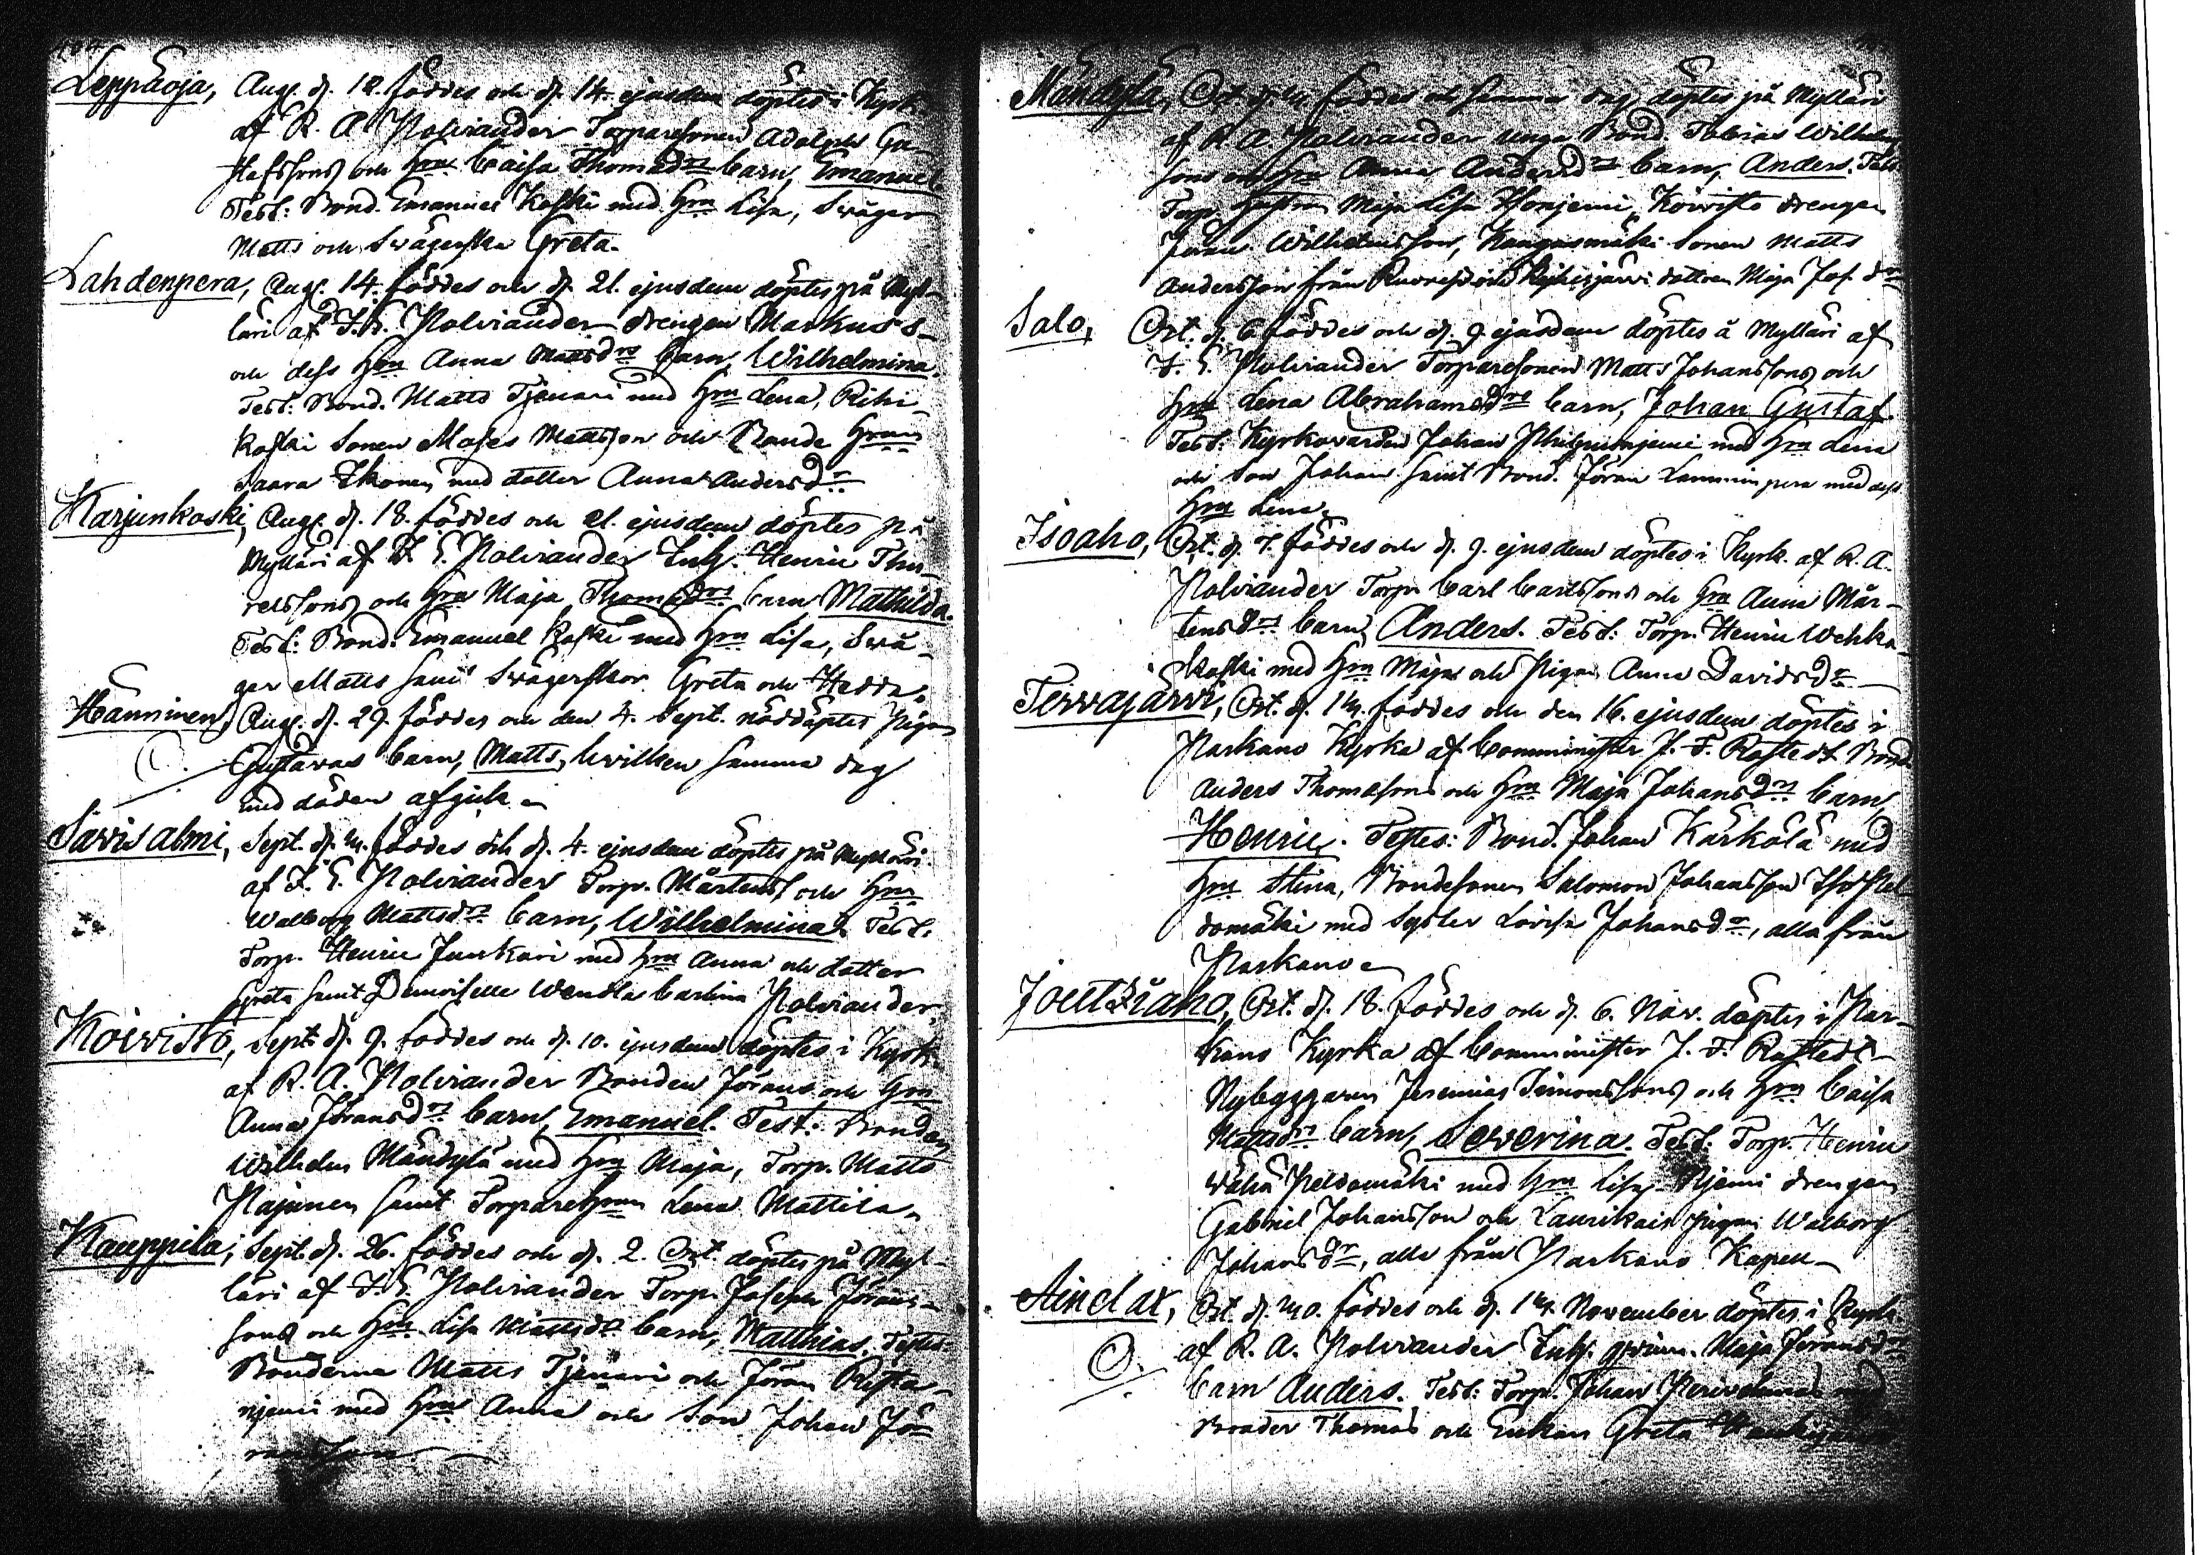 Leppäoja, Aug. d. 12. föddes och d. 14. ejusdem döptes i Kyrk.
af R. A. Polviander Torparesonen Adolph Gu-
stafssons och Hru Caisa Thomædrs barn, Emanuel
Test: Bond. Emanuel Koski med Hru Lisa, Swåger
Matts och Swägerska Greta.
Lahdenpera, Aug. 14. föddes och d. 21. ejusdem döptes på Myl-
läri af F. E. Polviander drengen Markus s-
och dess Hru Anna Mattsdrs barn, Wilhelmina.
Test: Bond. Matts Tjenari med Hru Lena, Rihi-
koski Sonen Moses Mattsson och Bonde Hrun
Saara Ikonen med dotter Anna Andersdr
Karjunkoski, Aug. d. 18. föddes och 21. ejusdem döptes på
Mylläri af F. E. Polviander Inh. Henric Thu-
ressons och Hru Maja Thomædrs barn Mathilda.
Test: Bond. Emanuel Koski med Hru Lisa, Swå-
ger Matts samt Swägerskor Greta och Hedda.
Hänninen, Aug. d. 29. föddes och den 4. Sept. nöddöptes Pigan
Gustavas barn, Matts, hvilken samma dag
med döden afgick.
Sävisalmi, Sept. d. 2. föddes och d. 4. ejusdem döptes på Mylläri
af F. E. Polviander Torp. Mårtens och Hru
Walborg Mattsdrs barn, Wilhelmina. Test.
Torp. Henric Junkari med Hru Anna och dotter
Greta samt Demoiselle Wendla Carlina Polviander.
Koivisto, Sept. d. 9. föddes och d. 10. ejusdem döptes i Kyrk.
af R. A. Polviander Bonden Jörans och Hru
Anna Jöransdrs barn, Emanuel. Test: Bonden
Wilhelm Mändylä med Hru Maja, Torp. Matts
Pajunen samt Torpare Hrun Lena Mattila.
Kauppila, Sept. d. 26. föddes och d. 2. Oct. döptes på Myl-
läri af F. E. Polviander Torp. Joseph Jörans-
sons och Hru Lisa Mattsdrs barn, Matthias. Testes
Bönderna Matts Tjenari och Jöran Rista-
njemi med Hru Anna och Son Johan Jö-
ransson
Mändylä, Oct. d. föddes och samma dag döptes på Mylläri
af R. A. Polviander unga Bond. Tobias Wilhelms-
sons och Hru Anna Andersdrs barn, Anders. Test
Torp. Hustrun Maja Lisa Honjemi, Koivisto drengen
Jöran Wilhelmsson, Kangasmäki Sonen Matts
Andersson från Ruovesi och Kyhisjärvi dottren Maja Jos. dr
Salo, Oct. d. 6 föddes och d. 9 ejusdem döptes å Mylläri af
F. E. Polviander Torparesonen Matts Johanssons och
Hru Lena Abrahamsdrs barn, Johan Gustaf.
Test: Kyrkovärden Johan med Hru Lena
och Son Johan samt Bond. Jöran Lamminpera med dess
Hru Lena.
Isoaho, Oct. d. 7. föddes och d. 9. ejusdem döptes i Kyrk. af R. A.
Polviander Torp. Carl Carlssons och Hru Anna Mår-
tensdrs barn, Anders. Test: Torp. Henric Wehka-
koski med Hru Maja och Pigan Anna Davidsdr
Tervajärvi, Oct. d. 12. föddes och den 16. ejusdem döptes i
Parkano Kyrka af Comminister J. F. Rostedt Bond
Anders Thomasons och Hru Maja Johansdrs barn,
Henric. Testes: Bond. Johan Kärkölä med
Hru Stina, Bondesonen Salomon Johansson Iso Pel-
domäki med Syster Lovisa Johansdr, alla från
Parkano
Joutziaho, Oct. d. 18. föddes och d. 6. Nov. döptes i Par-
kano Kyrka af Comminister J. F. Rostedt
Nybyggaren Jeremias Simonssons och Hru Caisa
Mattsdrs barn, Severina. Test: Torp. Henric
Wähä Peldomäki med Hru Lisa, Njemi drengen
Gabriel Johansson och Laurikain pigan Walborg
Johansdr, alla från Parkano Kapell
Ainelax, Oct. d. 20. föddes och d. 12. November döptes i Kyrk.
af R. A. Polviander Inh. qvinn. Maja Jöransdrs
barn Anders. Test: Torp. Johan med
Broder Thomas och Enkan Greta